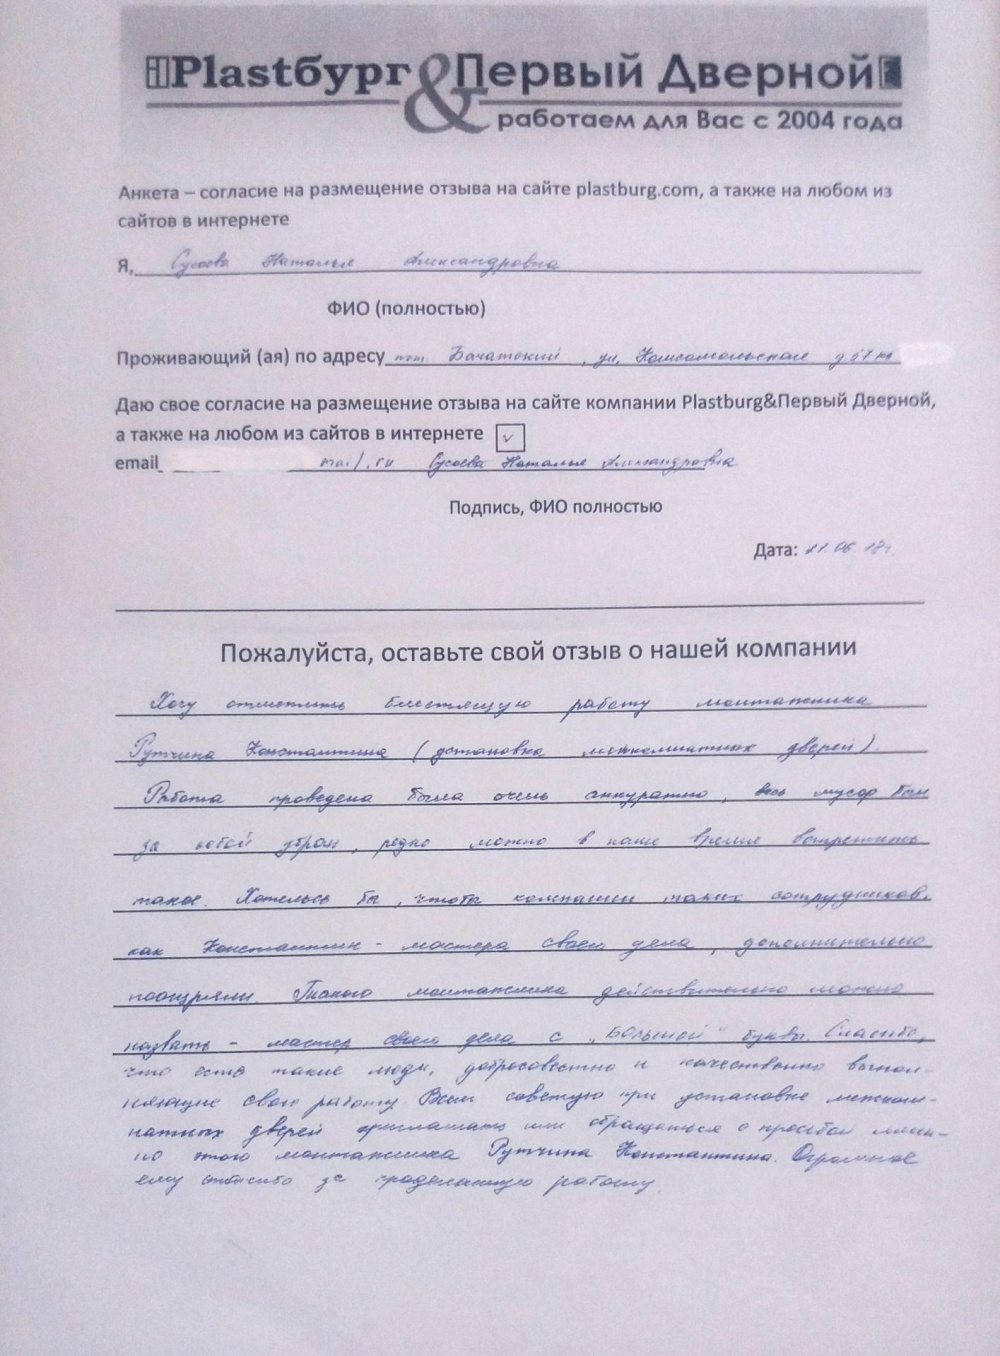 Plastбург & Первый Дверной
работаем для Вас с 2004 года
Анкета – согласие на размещение отзыва на сайте plastburg.com, а также на любом из
сайтов в интернете
Я, Сусоева Наталья Александровна
ФИО (полностью)
Проживающий (ая) по адресу пгт. Бачатский, ул. Комсомольская д.57 кв
Даю свое согласие на размещение отзыва на сайте компании Plastburg&Первый Дверной,
а также на любом из сайтов в интернете
email mail.ru Сусоева Наталья Александровна
Подпись, ФИО полностью
Дата: 21.06 18г.
Пожалуйста, оставьте свой отзыв о нашей компании
Хочу отметить блестящую работу монтажника
Рутчина Константина (установка межкомнатных дверей).
Работа проведена была очень аккуратно, весь мусор был
за собой убран, редко можно в наше время встретить
такое. Хотелось бы, чтобы компании таких сотрудников,
как Константин - мастера своего дела, дополнительно
поощряли. Такого монтажника действительно можно
назвать - мастер своего дела с "Большой" буквы. Спасибо,
что есть такие люди, добросовестно и качественно выпол-
няющие свою работу. Всем советую при установке межком-
натных дверей приглашать или обращаться с просьбой имен-
но этого монтажника Рутчина Константина. Огромное
ему спасибо за проделанную работу.